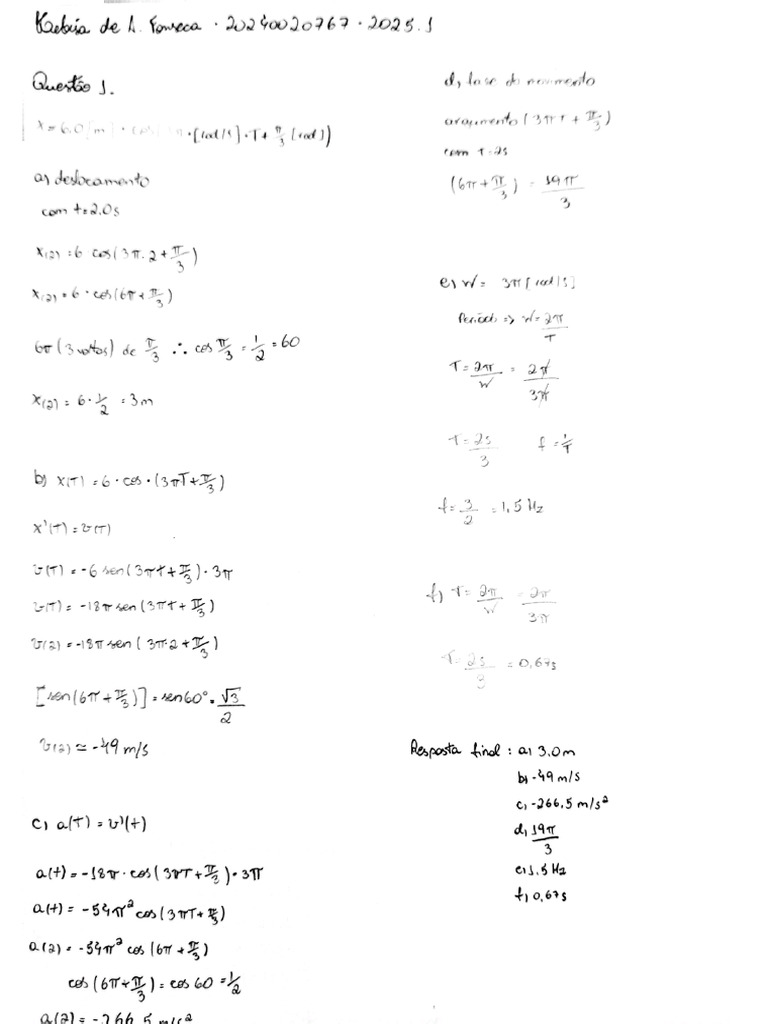 de A. Fonseca · 20240020767 · 2025.1
Questão 1.
x = 6.0 [m] · cos(3π · [rad/s] · T + π/3 [rad])
a) deslocamento
com t=2.0s
x(2) = 6 cos(3π.2 + π/3)
x(2) = 6 · cos(6π + π/3)
6π (3 voltas) de π/3 ∴ cos π/3 = 1/2 = 60
x(2) = 6 · 1/2 = 3m
b) x(T) = 6 · cos · (3πT + π/3)
x'(T) = v(T)
v(T) = -6 sen(3πt + π/3) · 3π
v(T) = -18π sen(3πt + π/3)
v(2) = -18π sen(3π.2 + π/3)
[sen(6π + π/3)] = sen60° = √3/2
v(2) ≃ -49 m/s
c) a(T) = v'(t)
a(t) = -18π · cos(3πT + π/3) · 3π
a(t) = -54π² cos(3πT + π/3)
a(2) = -54π² cos(6π + π/3)
cos(6π + π/3) = cos 60 = 1/2
a(2) = -266,5 m/s²
d) fase do movimento
argumento (3πt + π/3)
com t=2s
(6π + π/3) = 19π/3
e) W = 3π [rad/s]
Período => W = 2π/T
T = 2π/W = 2π/3π
T = 2s/3 f = 1/T
f = 3/2 = 1,5 Hz
f) T = 2π/W = 2π/3π
T = 2s/3 = 0,67s
Resposta final: a) 3.0m
b) -49 m/s
c) -266,5 m/s²
d) 19π/3
e) 1.5 Hz
f) 0,67s